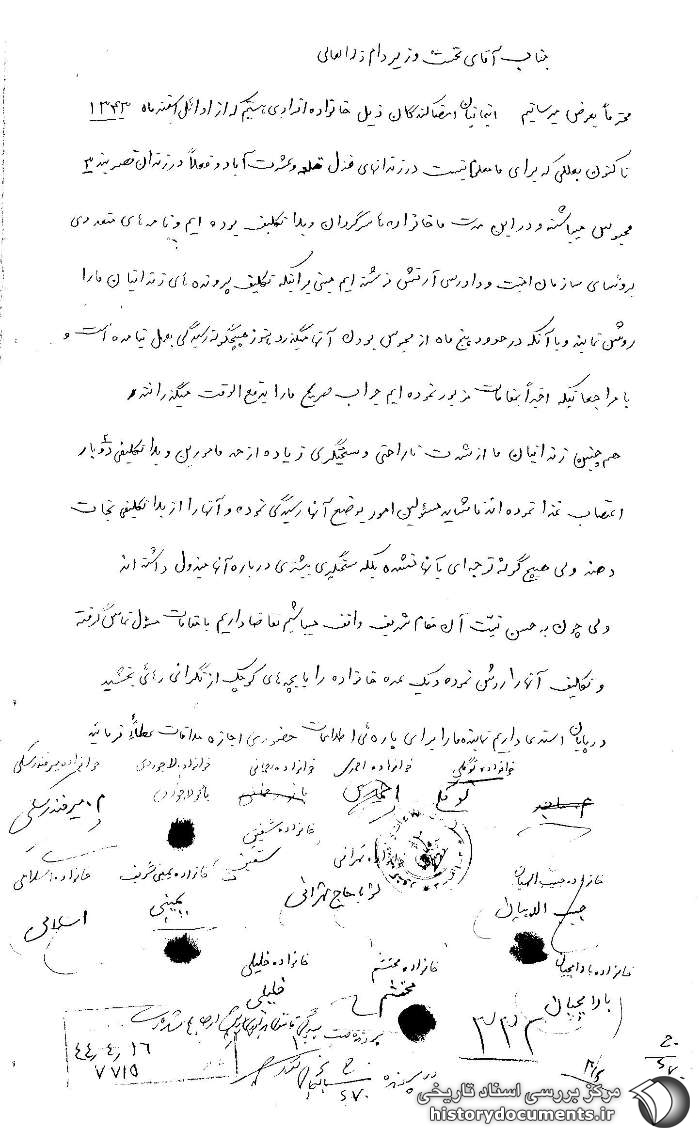 جناب آقای نخست وزیر دام ظله العالی
محترماً بعرض میرسانیم اینجانبان امضاکنندگان ذیل خانواده افرادی هستیم که از اوائل اسفند ماه ۱۳۴۳
تاکنون بعللی که برای ما معلوم نیست در زندانهای قزل قلعه و عشرت آباد و فعلاً در زندان قصر بند ۳
محبوس میباشند و در این مدت ما خانواده ها سرگردان و بلا تکلیف بوده ایم و نامه های متعددی
برؤسای سازمان امنیت و دادرسی ارتش نوشته ایم مبنی بر اینکه تکلیف پرونده های زندانیان ما را
روشن نمایند و با آنکه در حدود پنج ماه از محبوس بودن آنها میگذرد هنوز هیچگونه رسیدگی بعمل نیامده است و
با مراجعاتیکه اخیراً بمقامات مزبور نموده ایم جواب صریح ما را بدفع الوقت میگذرانند
هم چنین زندانیان ما از شدت ناراحتی و سختگیری زیاده از حد مامورین و بلا تکلیفی دو بار
اعتصاب غذا نموده اند تا شاید مسئولین امور بوضع آنها رسیدگی نموده و آنها را از بلا تکلیفی نجات
دهند ولی هیچ گونه توجه ای بآنها نشده بلکه سختگیری بیشتری درباره آنها مبذول داشته اند
ولی چون به حسن نیت آن مقام شریف واقف میباشیم تقاضا داریم با مقامات مسؤل تماس گرفته
و تکلیف آنها را روشن نموده و یک عده خانواده را با بچه های کوچک از نگرانی رهائی بخشید
در پایان استدعا داریم نماینده ما را برای پاره ئی اطلاعات حضوری اجازه ملاقات عطاء فرمائید
خانواده احمدی خانواده لاجوردی خانواده میرفندرسکی
احمدی م. میرفندرسکی
خانواده شفیق
خانواده حبیب الهیان تهرانی شفیق خانواده یمینی شریف خانواده اسلامی
حبیب الهیان حاج تهرانی یمینی اسلامی
خانواده بادامچیان خانواده محتشم خانواده خلیلی
بادامچیان محتشم خلیلی
۳۳۲
۴۴/۴/۱۶
۷۷۱۵
مرکز بررسی اسناد تاریخی
historydocuments.ir